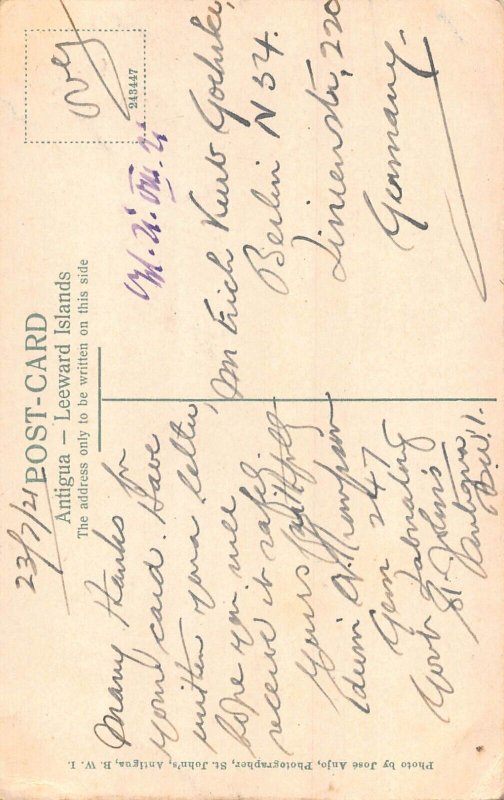 23/7/21
POST-CARD
Antigua — Leeward Islands
The address only to be written on this side
243447
Many thanks for
your card. Have
written you a letter,
hope you will
receive it safely.
Yours faithfully
Edwin A. Thompson
Gem 247
St. John's
Antigua
B.W.I.
Mr Erich Kurt
Berlin N 54.
Linienstr, 220
Germany
Photo by José Anjo, Photographer, St. John's, Antigua, B. W. I.